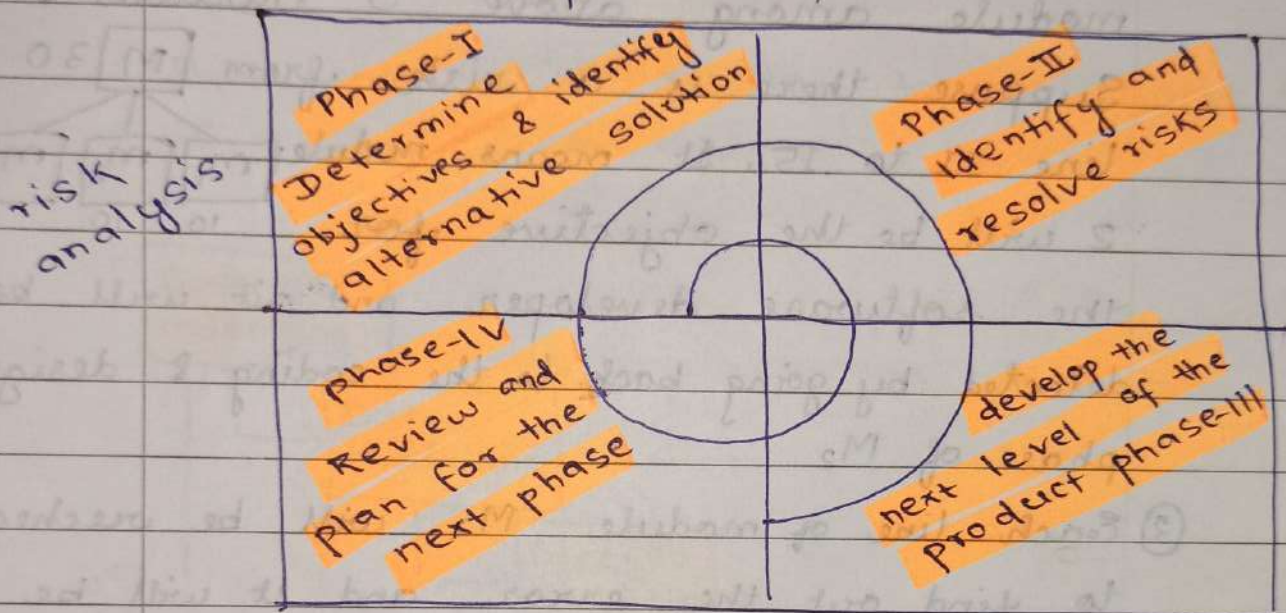 module among above
Suppose there from [m] 30
risk
analysis
Phase-I
Determine
objectives & identify
alternative solution
Phase-II
Identify and
resolve risks
phase-IV
Review and
plan for the
next phase
develop the
next level of the
Product phase-III